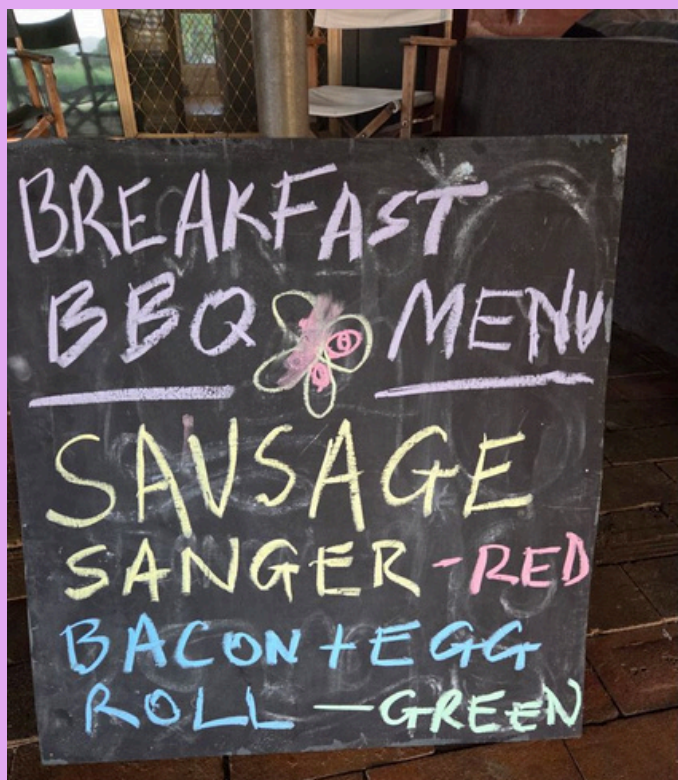 BREAKFAST
BBQ MENU
SAUSAGE
SANGER -RED
BACON + EGG
ROLL — GREEN